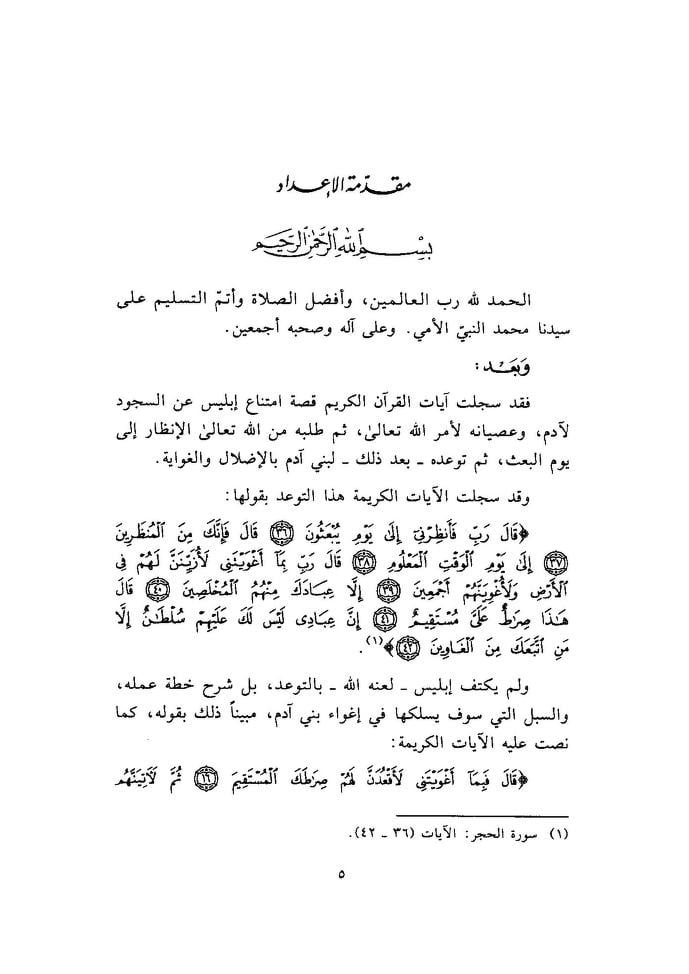 مقدّمة الإعداد
بِسْمِ اللهِ الرَّحْمٰنِ الرَّحِيمِ
الحمد لله رب العالمين، وأفضل الصلاة وأتمّ التسليم على
سيدنا محمد النبيّ الأمي. وعلى آله وصحبه أجمعين.
وَبَعْد:
فقد سجلت آيات القرآن الكريم قصة امتناع إبليس عن السجود
لآدم، وعصيانه لأمر الله تعالىٰ، ثم طلبه من الله تعالىٰ الإنظار إلى
يوم البعث، ثم توعده ـ بعد ذلك ـ لبني آدم بالإضلال والغواية.
وقد سجلت الآيات الكريمة هذا التوعد بقولها:
﴿قَالَ رَبِّ فَأَنظِرْنِي إِلَىٰ يَوْمِ يُبْعَثُونَ ٣٦ قَالَ فَإِنَّكَ مِنَ الْمُنظَرِينَ
٣٧ إِلَىٰ يَوْمِ الْوَقْتِ الْمَعْلُومِ ٣٨ قَالَ رَبِّ بِمَا أَغْوَيْتَنِي لَأُزَيِّنَنَّ لَهُمْ فِي
الْأَرْضِ وَلَأُغْوِيَنَّهُمْ أَجْمَعِينَ ٣٩ إِلَّا عِبَادَكَ مِنْهُمُ الْمُخْلَصِينَ ٤٠ قَالَ
هَٰذَا صِرَاطٌ عَلَيَّ مُسْتَقِيمٌ ٤١ إِنَّ عِبَادِي لَيْسَ لَكَ عَلَيْهِمْ سُلْطَانٌ إِلَّا
مَنِ اتَّبَعَكَ مِنَ الْغَاوِينَ ٤٢﴾(١).
ولم يكتف إبليس ـ لعنه الله ـ بالتوعد، بل شرح خطة عمله،
والسبل التي سوف يسلكها في إغواء بني آدم، مبيناً ذلك بقوله، كما
نصت عليه الآيات الكريمة:
﴿قَالَ فَبِمَا أَغْوَيْتَنِي لَأَقْعُدَنَّ لَهُمْ صِرَاطَكَ الْمُسْتَقِيمَ ١٦ ثُمَّ لَآتِيَنَّهُم
(١) سورة الحجر: الآيات (٣٦ ـ ٤٢).
٥